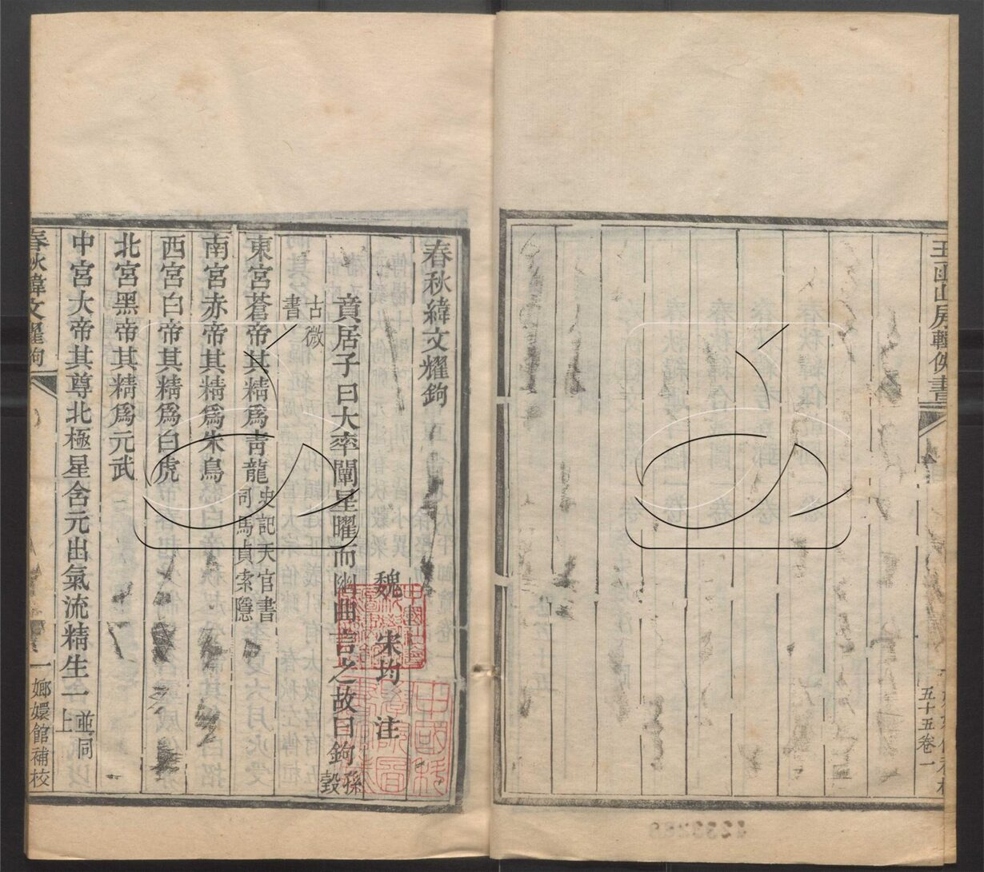 玉函山房輯佚書
五十五卷一
春秋緯文耀鉤
魏 宋均 注
賁居子曰大率闡星曜而幽曲言之故曰鉤孫瑴
古微書
東宮蒼帝其精爲青龍史記天官書司馬貞索隱
南宮赤帝其精爲朱鳥
西宮白帝其精爲白虎
北宮黑帝其精爲元武
中宮大帝其尊北極星含元出氣流精生一並同上
春秋緯文耀鉤
一
嫏嬛館補校